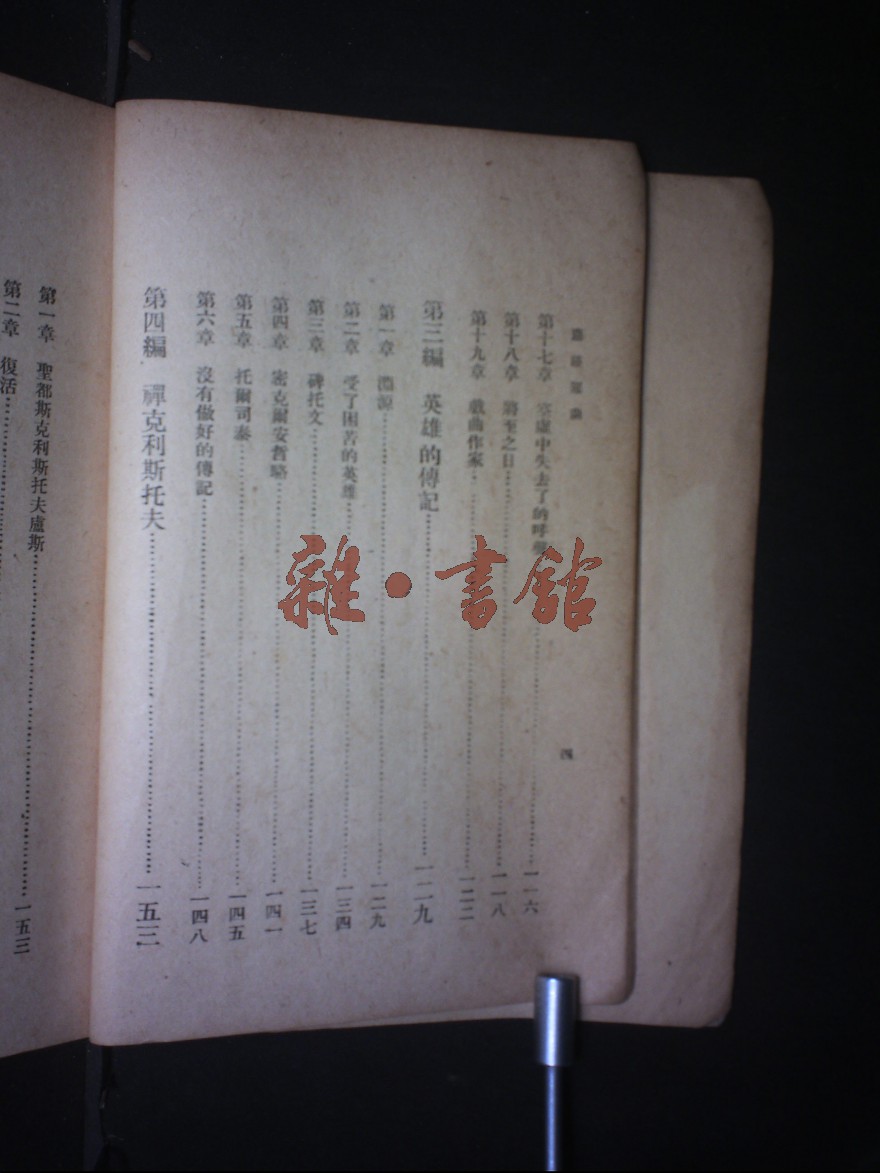 第十七章 空虛中失去了的呼聲 一一六
第十八章 將至之日 一一八
第十九章 戲曲作家 一二二
第三編 英雄的傳記 一二九
第一章 淵源 一二九
第二章 受了困苦的英雄 一三四
第三章 碑托文 一三七
第四章 密克爾安哲駱 一四一
第五章 托爾司泰 一四五
第六章 沒有做好的傳記 一四八
第四編 禪克利斯托夫 一五三
四
第一章 聖都斯克利斯托夫盧斯 一五三
第二章 復活
雜·書館